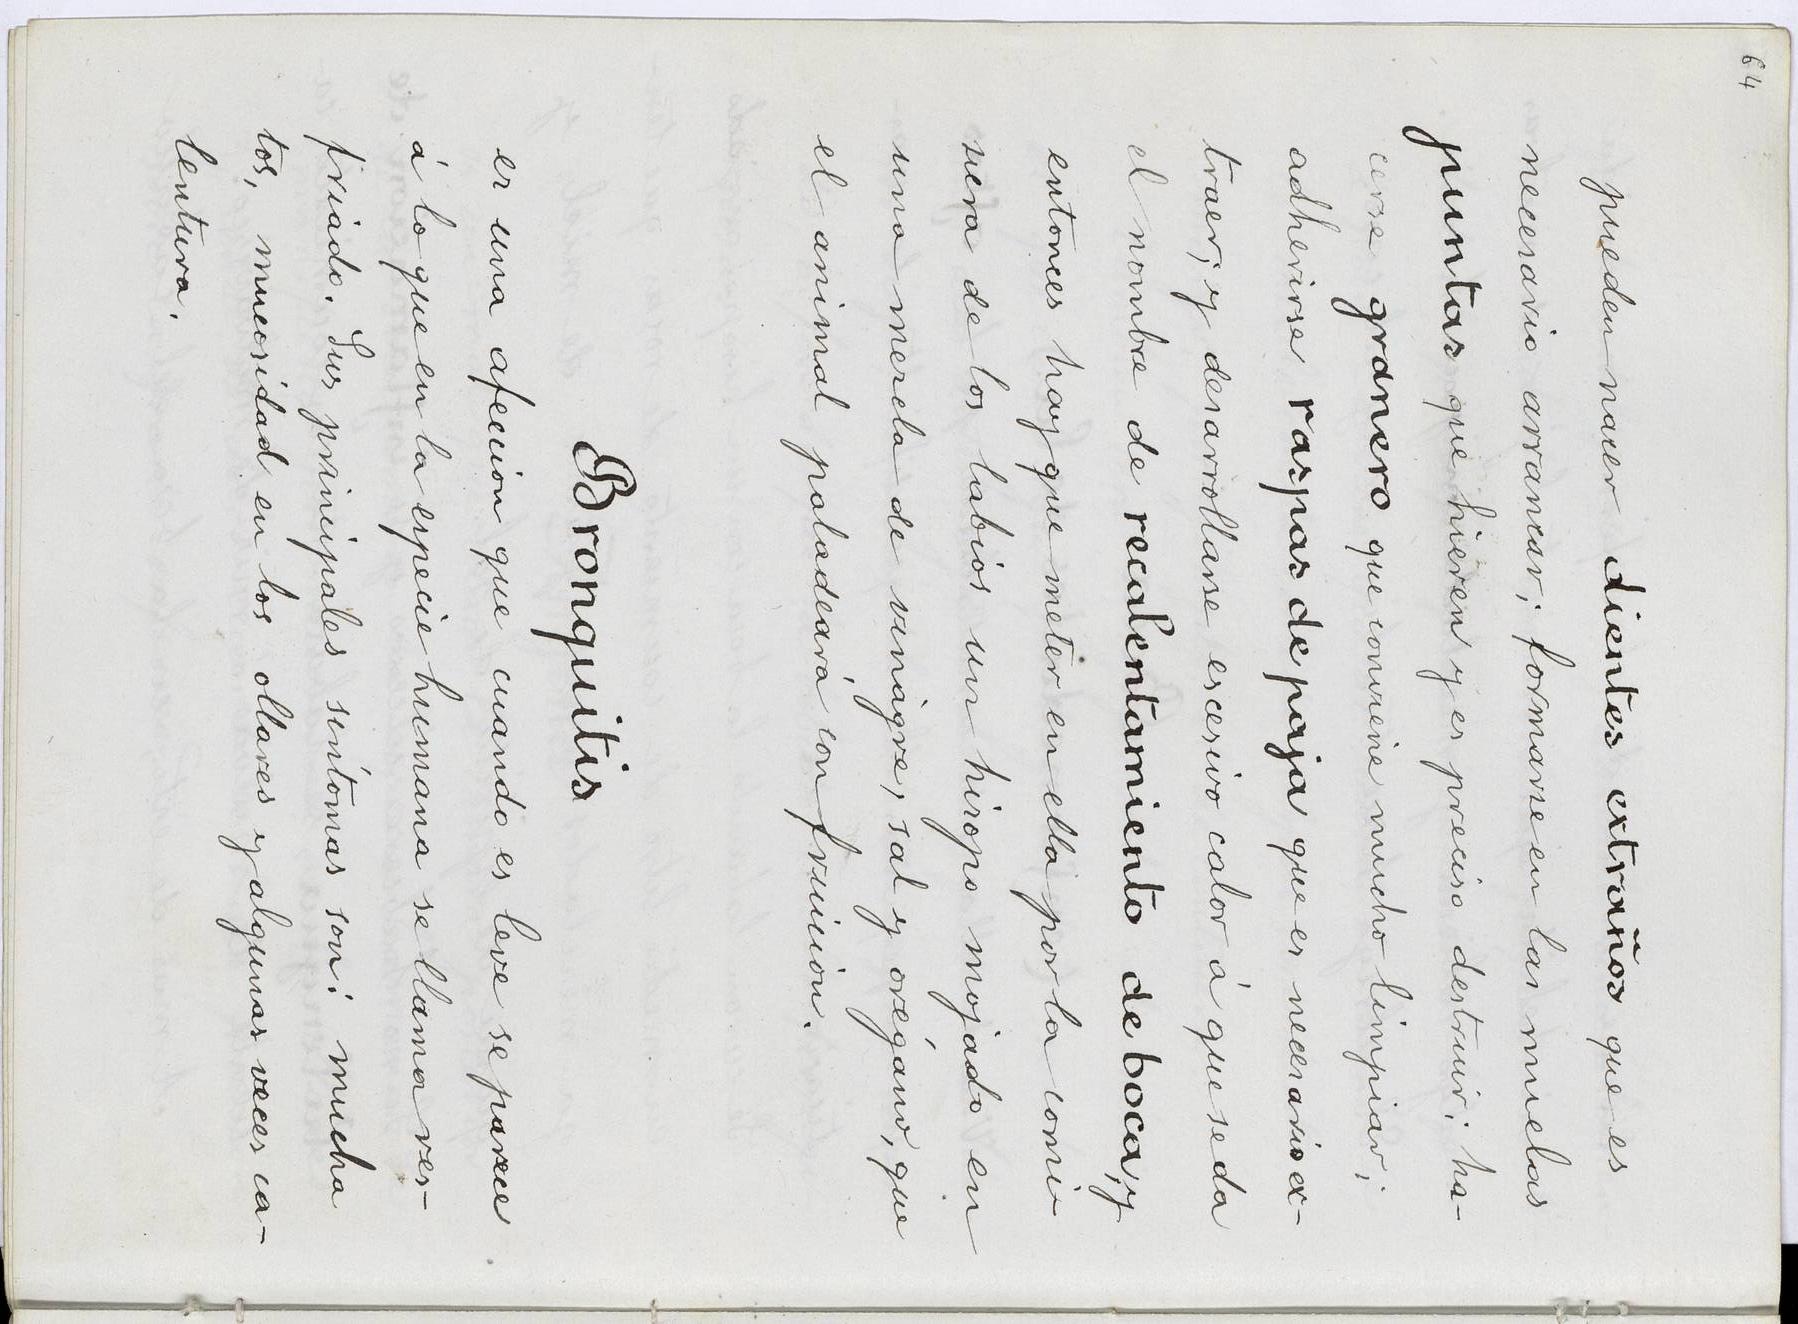 64
pueden nacer dientes extraños que es
necesario arrancar; formarse en las muelas
puntas que hieren y es preciso destruir; ha-
cerse granero que conviene mucho limpiar;
adherirse raspas de paja que es necesario ex-
traer; y desarrollarse escesivo calor á que se da
el nombre de recalentamiento de boca, y
entonces hay que meter en ella por la comi
sura de los labios un hisopo mojado en
una mezcla de vinágre, sal y orégano, que
el animal paladeará con fruicion.
Bronquitis
es una afeccion que cuando es leve se parece
á lo que en la especie humana se llama res-
friado. Sus principales síntomas son: mucha
tos, mucosidad en los ollares y algunas veces ca-
lentura.